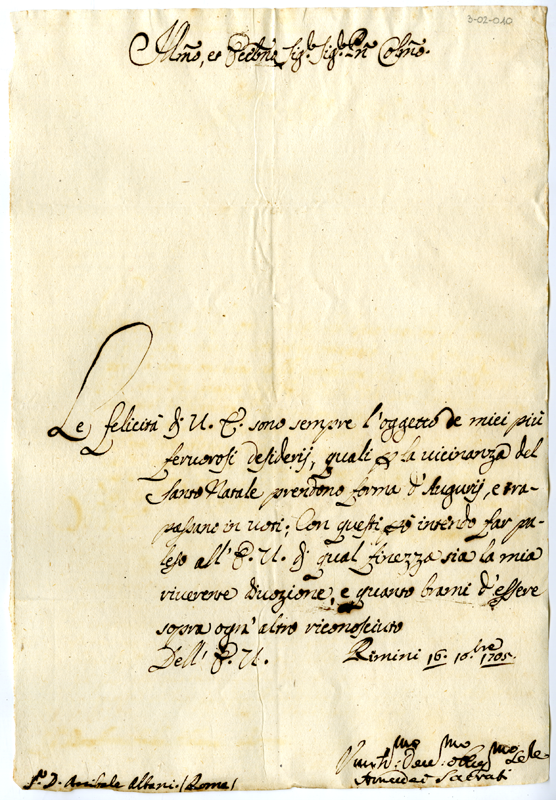 3-02-010
Illmo, et Eccmo Sig.r Sig.r Prn Colmo.
Le felicità di V. E. sono sempre l'oggetto de miei più
fervorosi desiderij, quali p la vicinanza del
Santo Natale prendono forma d'Augurij, e tra-
passano in voti; Con questi intendo far pa-
lese all' E. V. di qual finezza sia la mia
riverente divozione, e quanto brami d'essere
sopra ogn' altro riconosciuto
Dell' E. V. Rimini 16. 10.bre 1705.
Dev.mo Obblig.mo
Amedeo
D. Anibale Albani. (Roma)